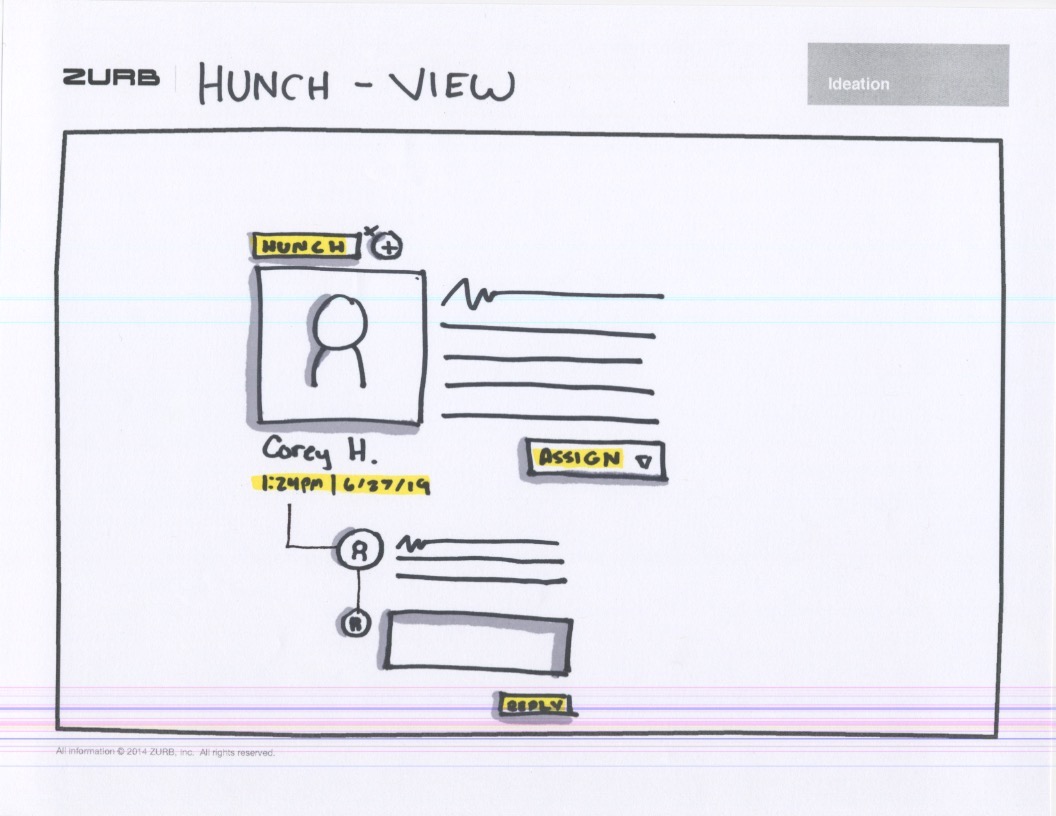 ZURB
HUNCH - VIEW
Ideation
HUNCH
Corey H.
1:24PM | 6/27/19
ASSIGN
R
R
REPLY
All information © 2014 ZURB, inc. All rights reserved.